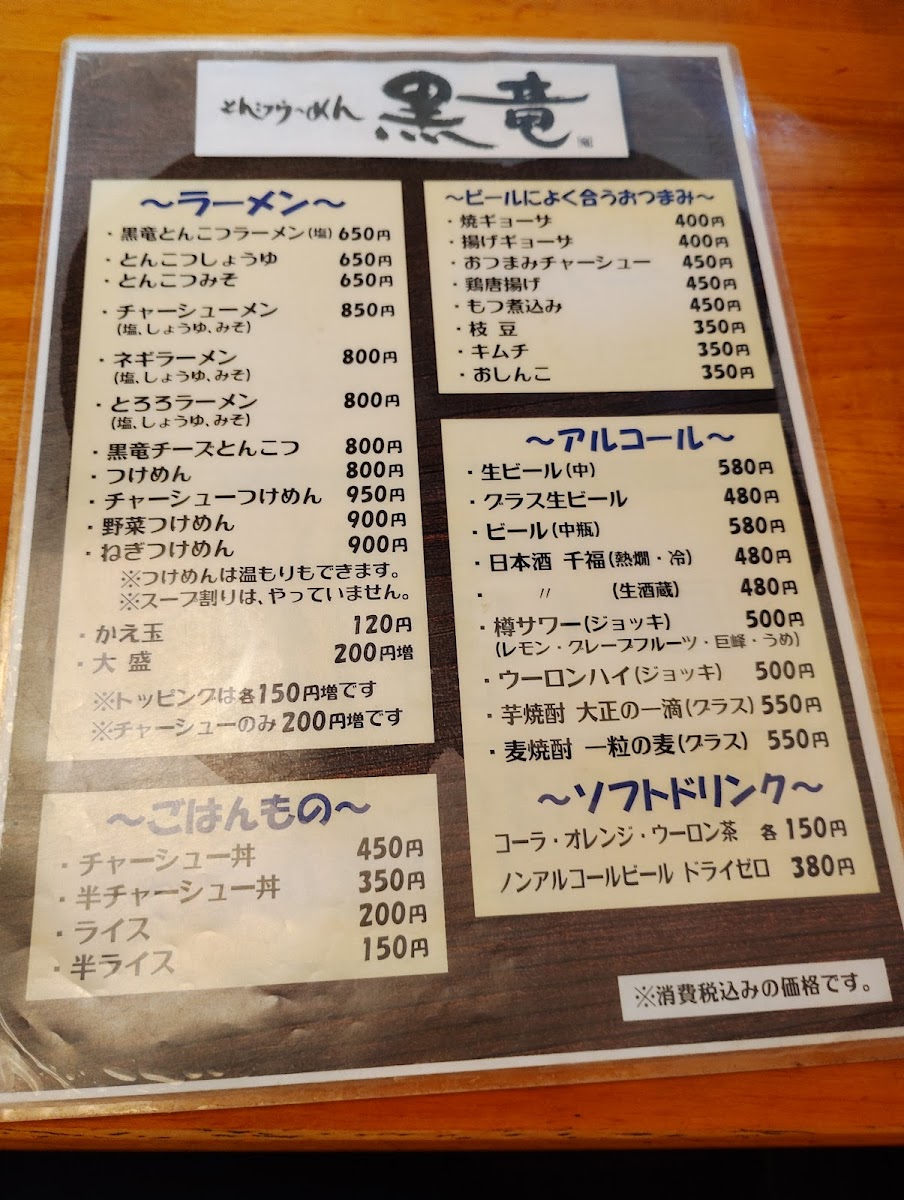 とんこつらーめん 黒竜
～ラーメン～
・黒竜とんこつラーメン(塩) 650円
・とんこつしょうゆ 650円
・とんこつみそ 650円
・チャーシューメン 850円
(塩、しょうゆ、みそ)
・ネギラーメン 800円
(塩、しょうゆ、みそ)
・とろろラーメン 800円
(塩、しょうゆ、みそ)
・黒竜チーズとんこつ 800円
・つけめん 800円
・チャーシューつけめん 950円
・野菜つけめん 900円
・ねぎつけめん 900円
※つけめんは温もりもできます。
※スープ割りは、やっていません。
・かえ玉 120円
・大盛 200円増
※トッピングは各150円増です
※チャーシューのみ200円増です
～ごはんもの～
・チャーシュー丼 450円
・半チャーシュー丼 350円
・ライス 200円
・半ライス 150円
～ビールによく合うおつまみ～
・焼ギョーサ 400円
・揚げギョーサ 400円
・おつまみチャーシュー 450円
・鶏唐揚げ 450円
・もつ煮込み 450円
・枝豆 350円
・キムチ 350円
・おしんこ 350円
～アルコール～
・生ビール(中) 580円
・グラス生ビール 480円
・ビール(中瓶) 580円
・日本酒 千福(熱燗・冷) 480円
・ 〃 (生酒蔵) 480円
・樽サワー(ジョッキ) 500円
(レモン・グレープフルーツ・巨峰・うめ)
・ウーロンハイ(ジョッキ) 500円
・芋焼酎 大正の一滴(グラス) 550円
・麦焼酎 一粒の麦(グラス) 550円
～ソフトドリンク～
コーラ・オレンジ・ウーロン茶 各150円
ノンアルコールビール ドライゼロ 380円
※消費税込みの価格です。